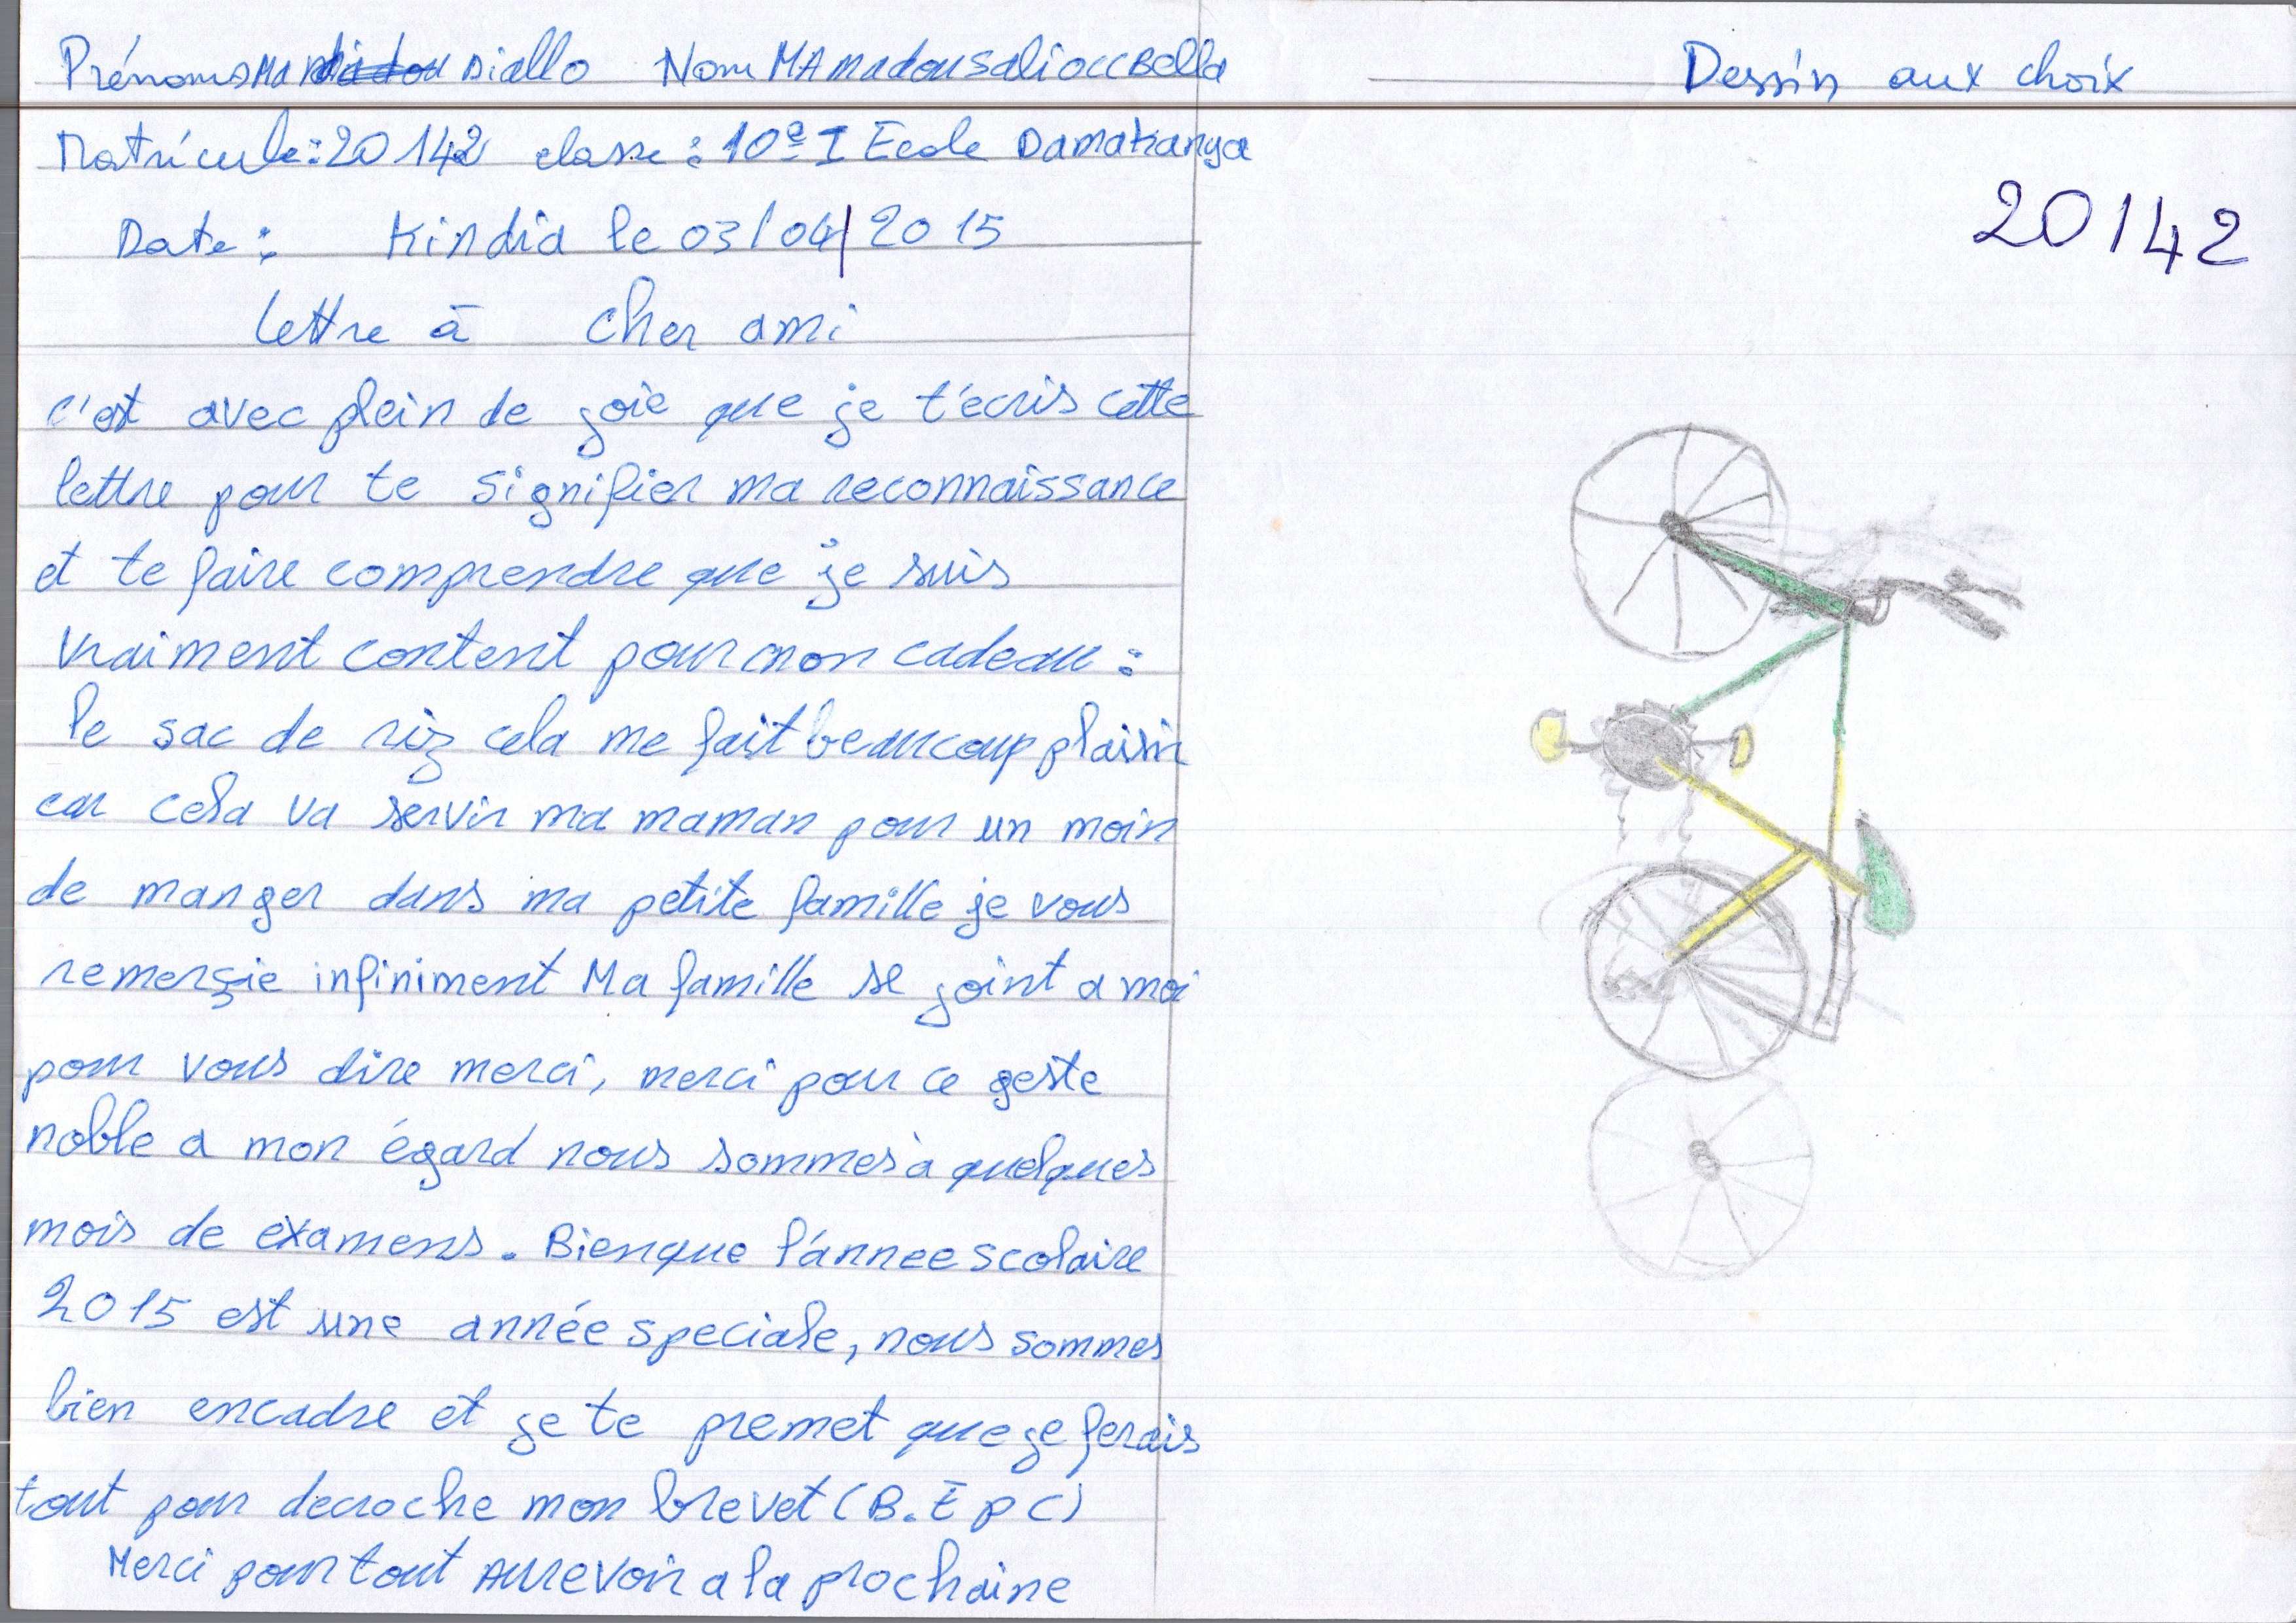 Prénoms Diallo Nom MAmadousaliouBella
Matricule: 20142 classe: 10e I Ecole Damakanya
Date: Kindia le 03/04/2015
lettre à cher ami
c'est avec plein de joie que je t'écris cette
lettre pour te signifier ma reconnaissance
et te faire comprendre que je suis
vraiment content pour mon cadeau:
le sac de riz cela me fait beaucoup plaisir
car cela va servir ma maman pour un moin
de manger dans ma petite famille je vous
remerçie infiniment Ma famille se joint a moi
pour vous dire merci, merci pour ce geste
noble a mon égard nous sommes à quelques
mois de examens. Bienque l'annee scolaire
2015 est une année speciale, nous sommes
bien encadre et je te premet que je ferais
tout pour decroche mon brevet (B.E P C)
Merci pour tout Aurevoir a la prochaine
Dessin aux choix
20142